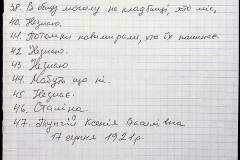 38. В общу могилу на кладбищі, хто міг,
40. Незнаю.
41. Потомки повимирали, хто їх поминає.
42. Незнаю
43. Незнаю
44. Мабуть що ні.
45. Незнає.
46. Сталіна.
47. Ксенія Василівна
17 серпня 1921 р.